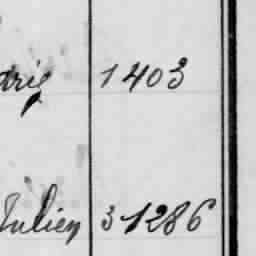 drig 1403
Julien 31286